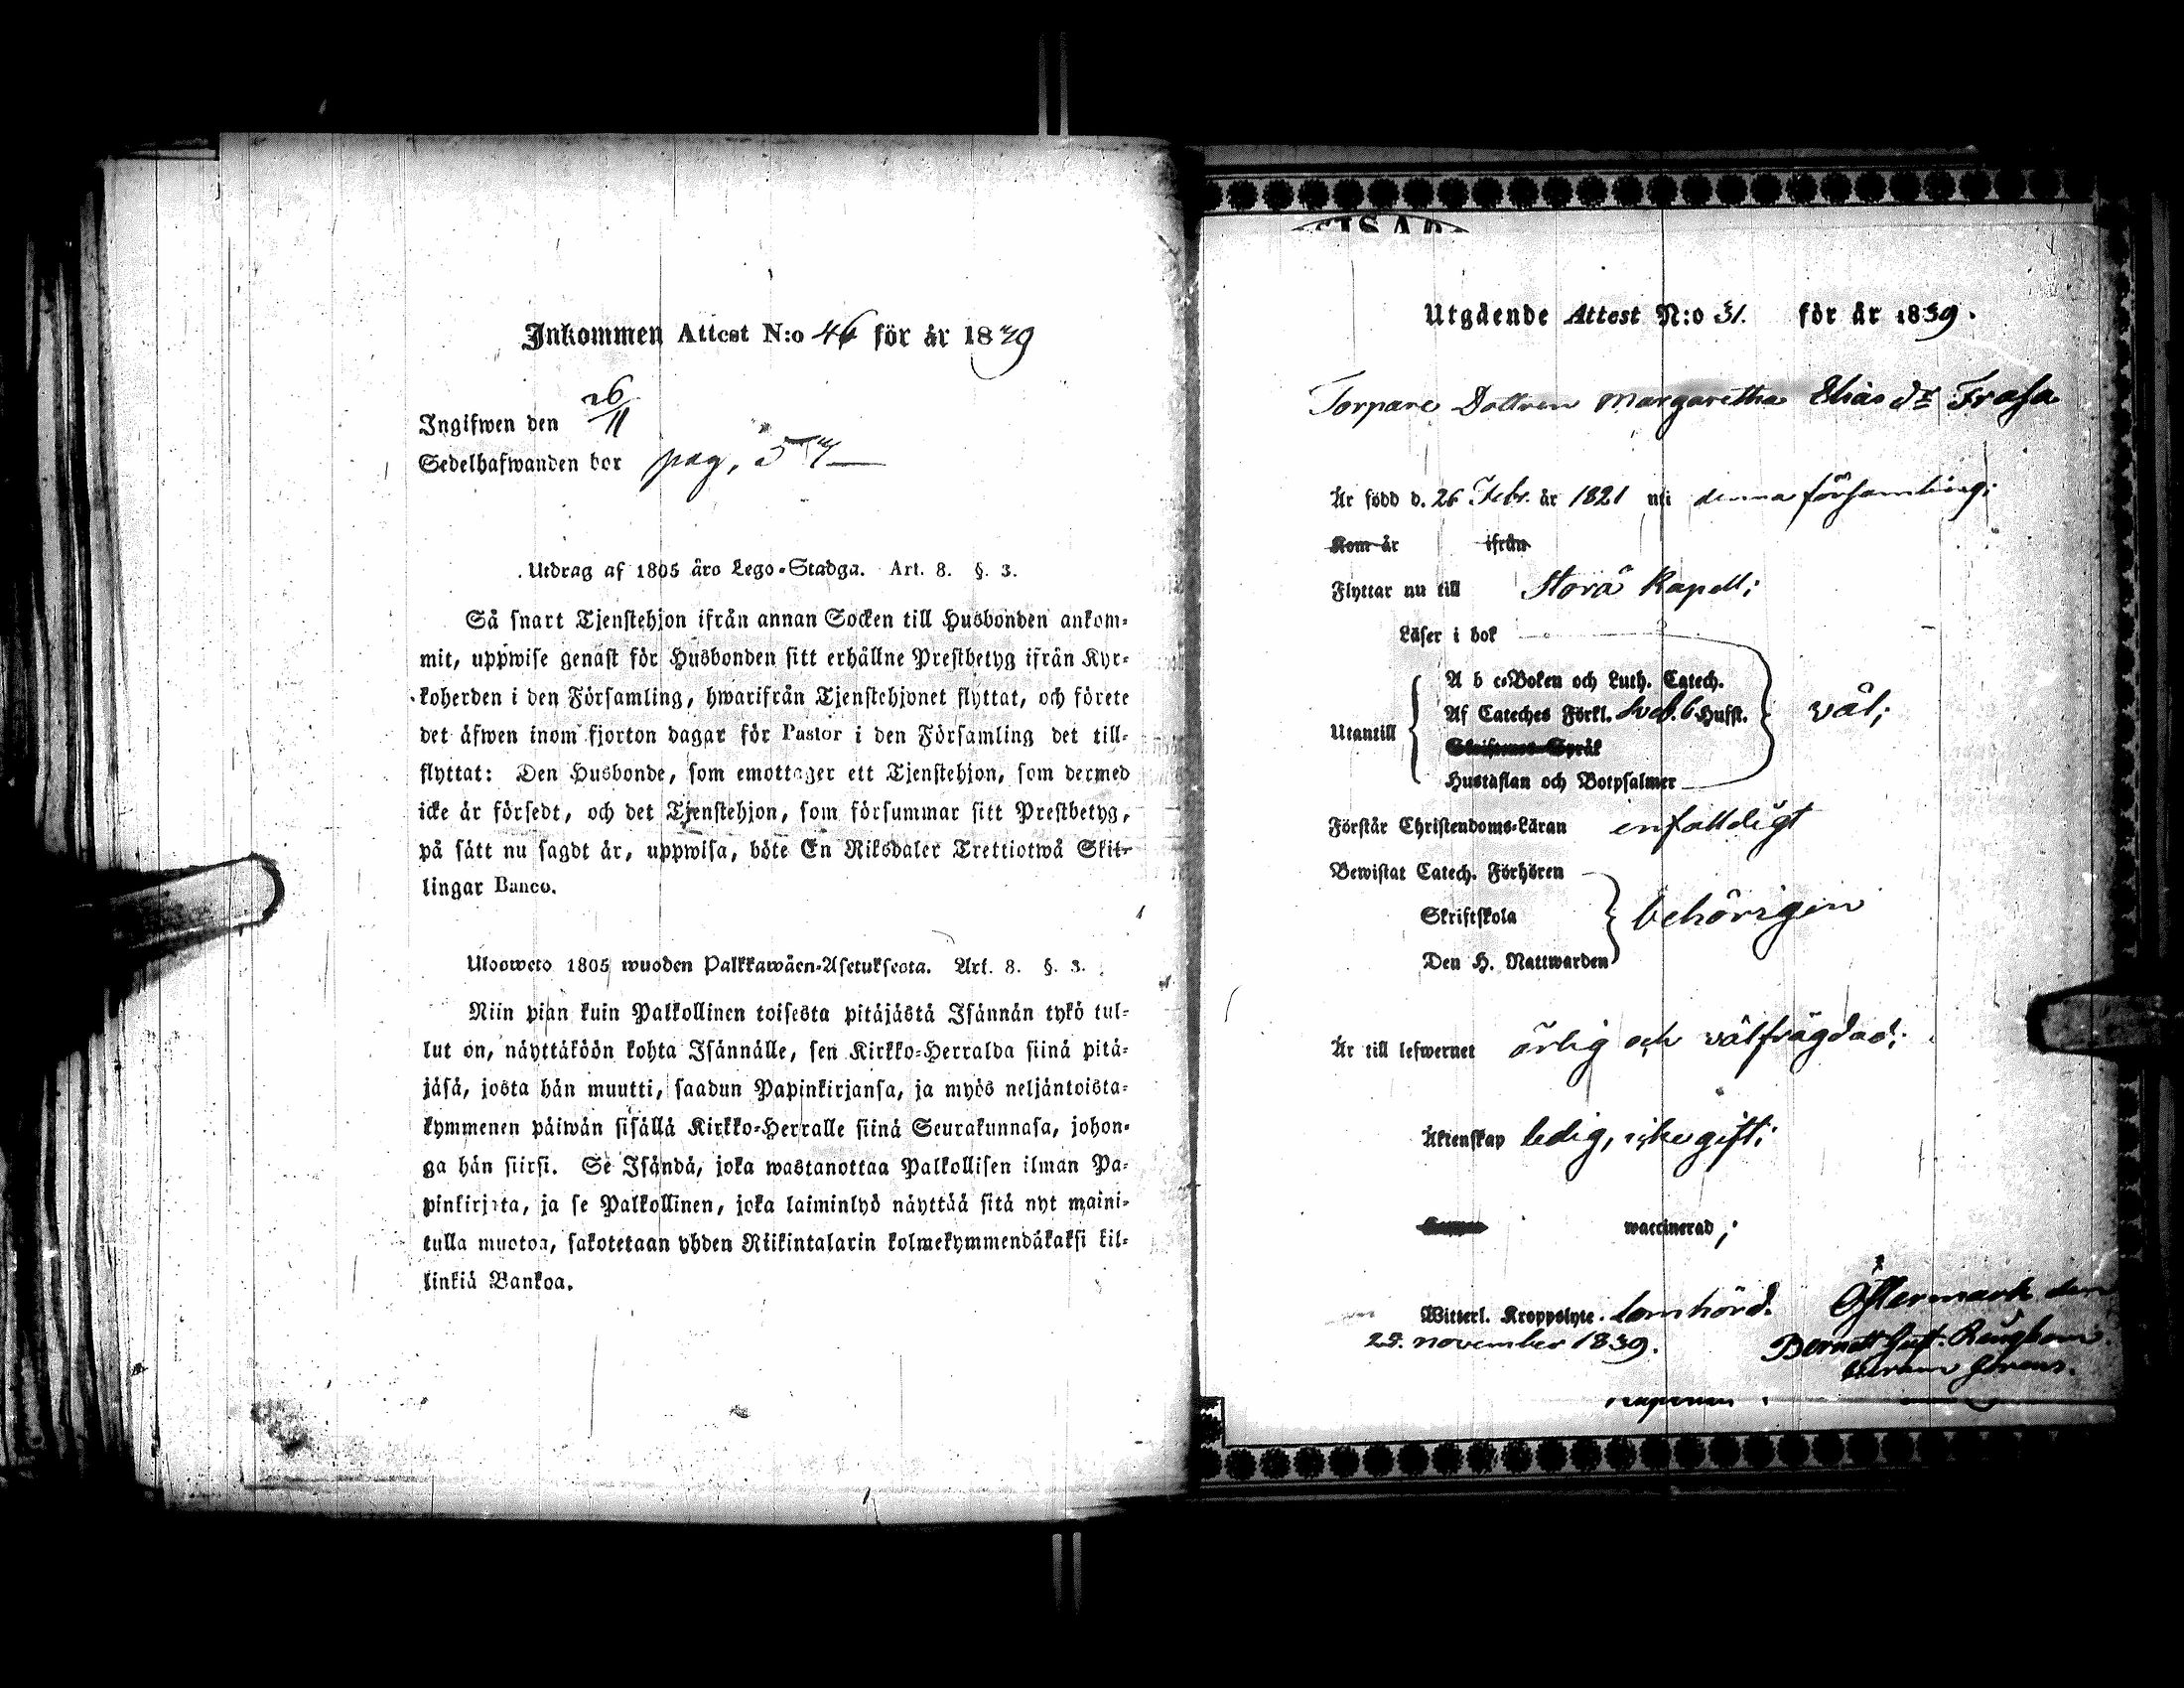 Inkommen Attest N:o 46 för år 1839
Ingifwen den 26/11
Sedelhafwanden bor pag, 54
Utdrag af 1805 åro Lego-Stadga. Art. 8. §. 3.
Så snart Tjenstehjon ifrån annan Socken till Husbonden ankom-
mit, uppwise genast för Husbonden sitt erhållne Prestbetyg ifrån Kyr-
koherden i den Församling, hwarifrån Tjenstehjonet flyttat, och förete
det äfwen inom fjorton dagar för Pastor i den Församling det till-
flyttat: Den Husbonde, som emottager ett Tjenstehjon, som dermed
icke är försedt, och det Tjenstehjon, som försummar sitt Prestbetyg,
på sätt nu sagdt är, uppwisa, böte En Riksdaler Trettiotwå Skil-
lingar Banco.
Uloswcto 1805 wuoden Palkkawäen-Asetuksesta. Art. 8. §. 3.
Niin pian kuin Palkollinen toisesta pitäjästä Isännän tykö tul-
lut on, näyttäköön kohta Isännälle, sen Kirkko-Herralda siinä pitä-
jäsä, josta hän muutti, saadun Papinkirjansa, ja myös neljäntoista-
kymmenen päiwän sisällä Kirkko-Herralle siinä Seurakunnasa, johon-
ga hän siirsi. Se Isändä, joka wastanottaa Palkollisen ilman Pa-
pinkirjata, ja se Palkollinen, joka laiminlyö näyttää sitä nyt maini-
tulla muotoa, sakotetaan yhden Riikintalarin kolmekymmendäkaksi kil-
linkiä Bankoa.
Utgående Attest N:o 31. för år 1839.
Torpare Dottren Margaretha Elias dr Frasa
Är född d. 26 Febr. år 1821 uti denna församling;
Kom år ifrån
Flyttar nu till Storå Kapell;
Läser i bok
A b c-Boken och Luth. Catech.
Af Cateches Förkl. Sveb. 6 Hufst. väl;
Utantill
Skriftenes Språk
Hustaflan och Botpsalmer
Förstår Christendoms-Läran enfalldigt
Bewistat Catech. Förhören
Skriftskola behörigen
Den H. Nattwarden
Är till lefwernet ärlig och välfrägdad;
Äktenskap ledig, icke gift;
waccinerad;
Witterl. Kroppslyte. lomhörd. Östermark den
25. november 1839. Berndt Gust.